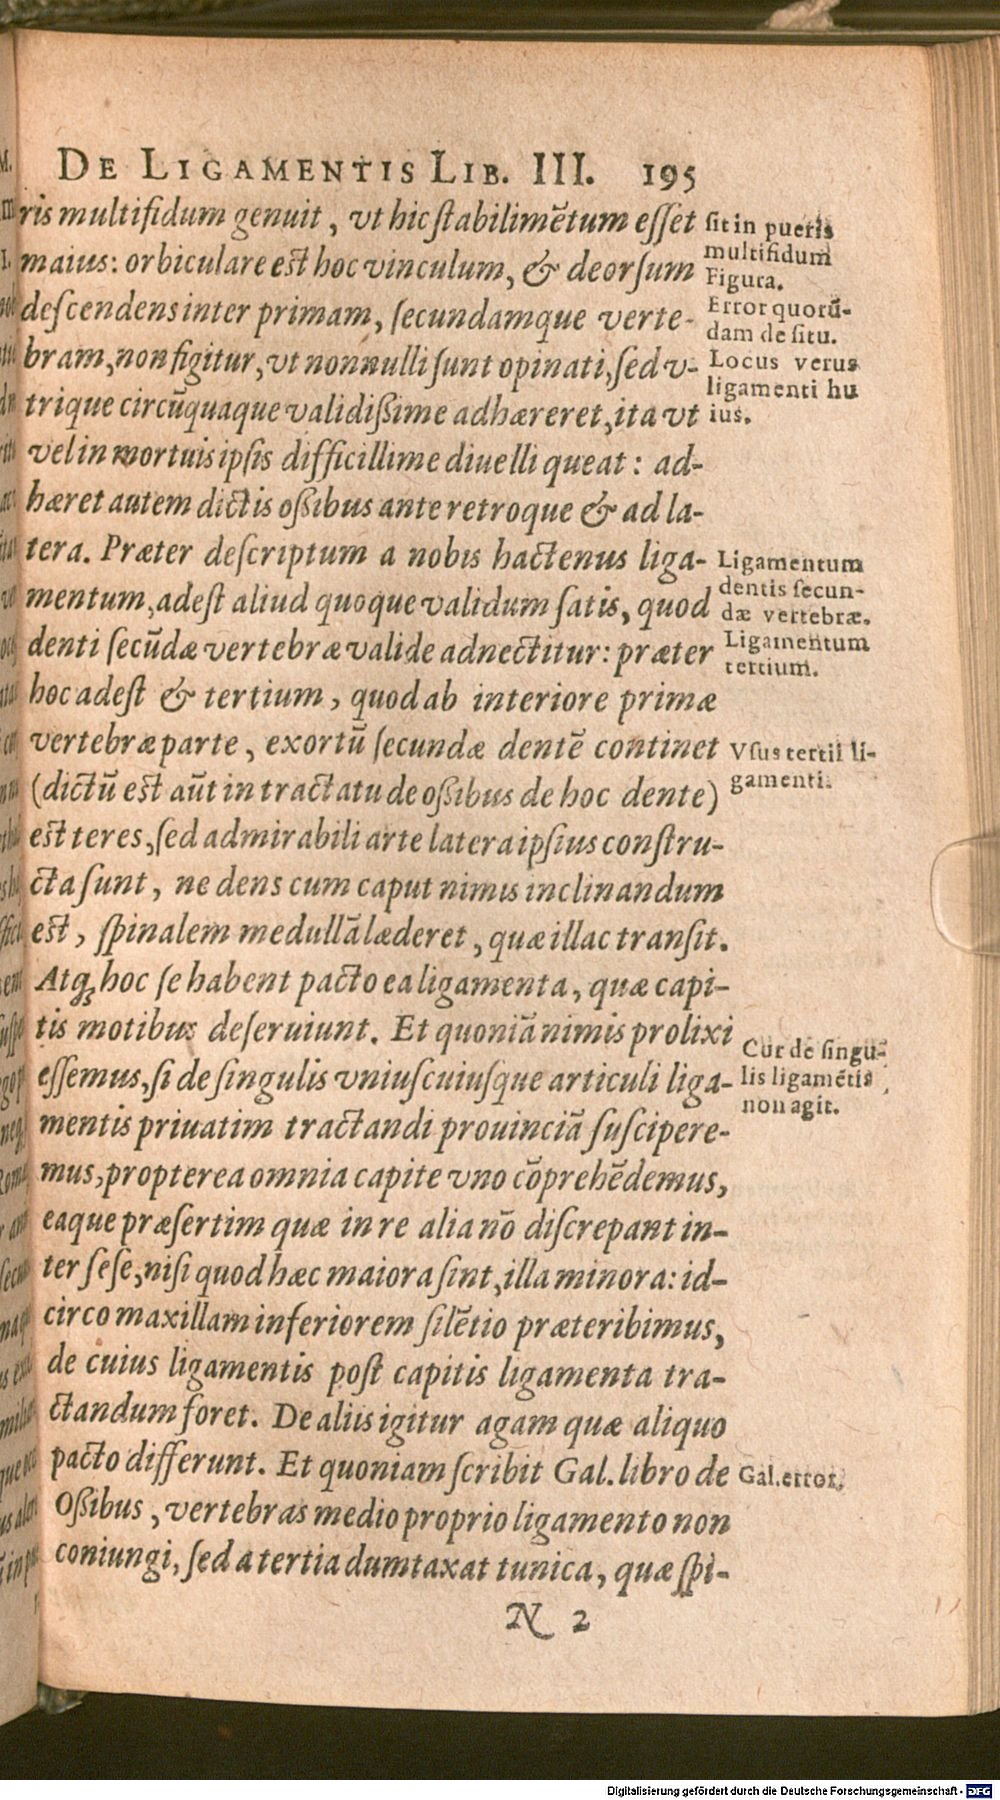 DE LIGAMENTIS LIB. III. 195
ris multifidum genuit, vt hic stabilimētum esset
maius: orbiculare est hoc vinculum, & deorsum
descendens inter primam, secundamque verte-
bram, non figitur, vt nonnulli sunt opinati, sed v-
trique circūquaque validißime adhæreret, ita vt
vel in mortuis ipsis difficillime diuelli queat: ad-
hæret autem dictis oßibus ante retroque & ad la-
tera. Præter descriptum a nobis hactenus liga-
mentum, adest aliud quoque validum satis, quod
denti secūdæ vertebræ valide adnectitur: præter
hoc adest & tertium, quod ab interiore primæ
vertebræ parte, exortū secundæ dentē continet
(dictū est aūt in tractatu de oßibus de hoc dente)
est teres, sed admirabili arte latera ipsius constru-
cta sunt, ne dens cum caput nimis inclinandum
est, spinalem medullā læderet, quæ illac transit.
Atq; hoc se habent pacto ea ligamenta, quæ capi-
tis motibus deseruiunt. Et quoniā nimis prolixi
essemus, si de singulis vniuscuiusque articuli liga-
mentis priuatim tractandi prouinciā suscipere-
mus, propterea omnia capite vno cōprehēdemus,
eaque præsertim quæ in re alia nō discrepant in-
ter sese, nisi quod hæc maiora sint, illa minora: id-
circo maxillam inferiorem silētio præteribimus,
de cuius ligamentis post capitis ligamenta tra-
ctandum foret. De aliis igitur agam quæ aliquo
pacto differunt. Et quoniam scribit Gal. libro de
Oßibus, vertebras medio proprio ligamento non
coniungi, sed a tertia dumtaxat tunica, quæ spi-
N 2
sit in pueris
multifidum
Figura.
Error quorū-
dam de situ.
Locus verus
ligamenti hu
ius.
Ligamentum
dentis secun-
dæ vertebræ.
Ligamentum
tertium.
Vsus tertii li-
gamenti.
Cur de singu-
lis ligamētis
non agit.
Gal. error.
Digitalisierung gefördert durch die Deutsche Forschungsgemeinschaft - DFG